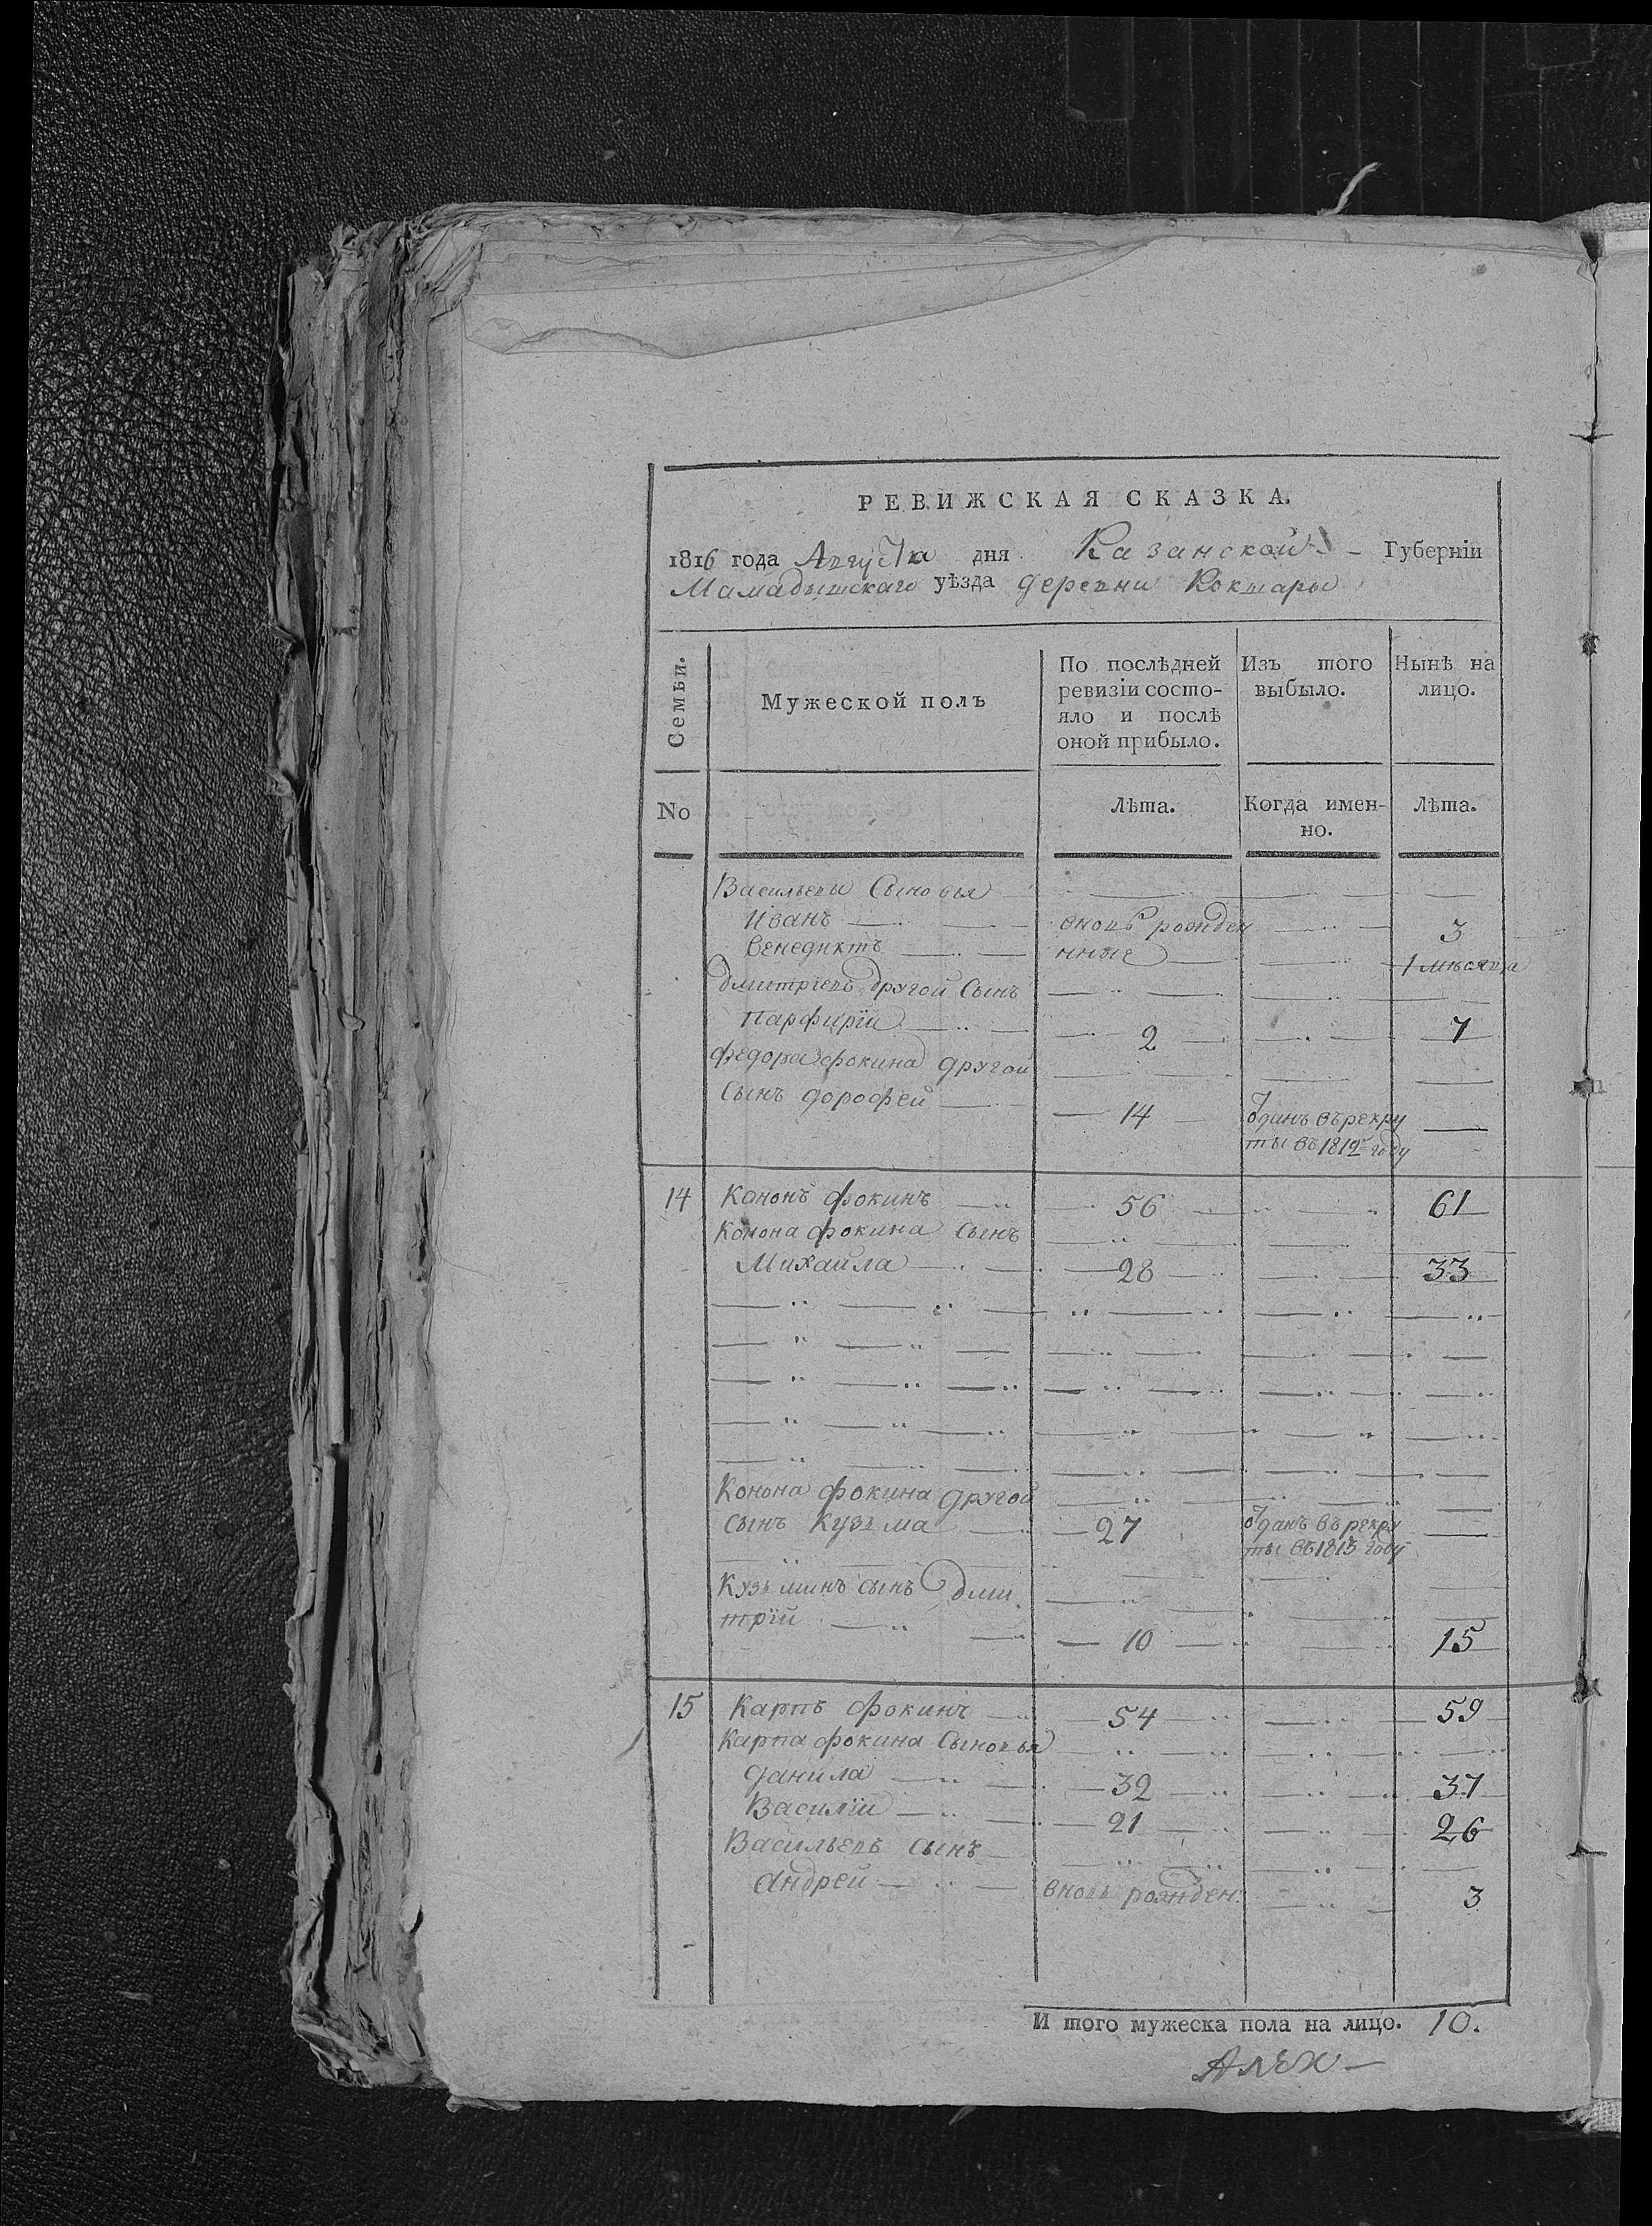 РЕВИЖСКАЯ СКАЗКА.
1816 года Августа дня Казанской Губернїи
Мамадышскаго уѣзда деревни Кокшары
Семьи.
Мужеской полъ
По послѣдней
ревизїи состо-
яло и послѣ
оной прибыло.
Изъ того
выбыло.
Нынѣ на
лицо.
No
Лѣта.
Когда имен-
но.
Лѣта.
Васильевы Сыновья
Иванъ вновь рожден 3
Венедиктъ нные 1 мѣсяца
Дмитрїевъ другой Сынъ
Парфирїй 2 7
Федора Фокина другой
Сынъ Дорофей 14 Одданъ въ рекру
ты въ 1812 году
14 Кононъ Фокинъ 56 61
Конона Фокина Сынъ
Михайла 28 33
Конона Фокина другой
сынъ Кузьма 27 Одданъ въ рекру
ты въ 1813 году
Кузьминъ сынъ Дми
трїй 10 15
15 Карпъ Фокинъ 54 59
Карпа Фокина Сыновья
Данила 32 37
Василїй 21 26
Васильевъ сынъ
Андрей вновь рожден: 3
И того мужеска пола на лицо. 10.
Алек